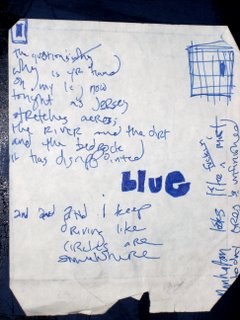 the question is why
why is yr hand
on my leg now
tonight as Jersey
stretches across
the river and the dirt
and the bedrock
it has disappointed
blue
and and and I keep
driving like
circles are
somewhere
Manhattan looks like a